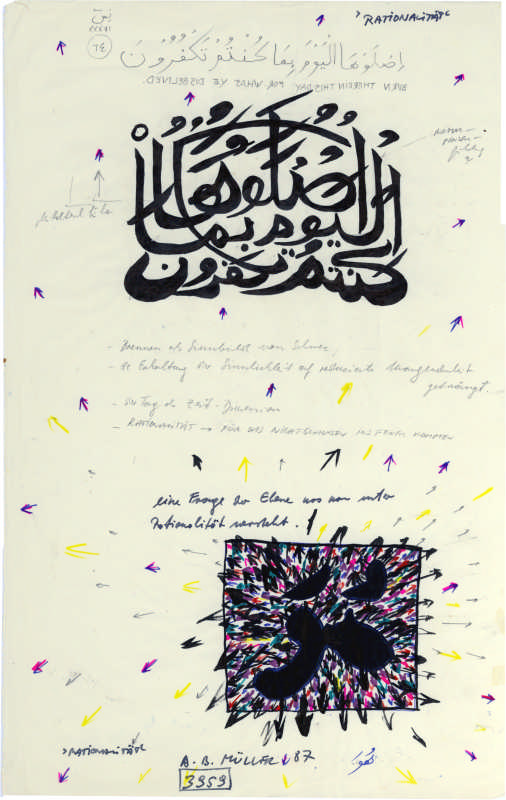 ›RATIONALITÄT‹
يس
XXXVI
٦٤
اِصْلَوْهَا الْيَوْمَ بِمَا كُنْتُمْ تَكْفُرُونَ
BURN THEREIN THIS DAY FOR WHAT YE DISBELIEVED.
اِصْلَوْهَا
الْيَوْمَ بِمَا
كُنْتُمْ تَكْفُرُونَ
- Brennen als Sinnbild von
- Erhaltung der Sinnlichkeit auf reduzierte
gedrängt.
- der Tag als Zeit-Dimension
- RATIONALITÄT → FÜR DAS NICHTGLAUBEN INS FEUER KOMMEN
eine Frage der Ebene was man unter
Rationalität versteht. !
›RATIONALITÄT‹
A. B. MÜLLER '87.
3959